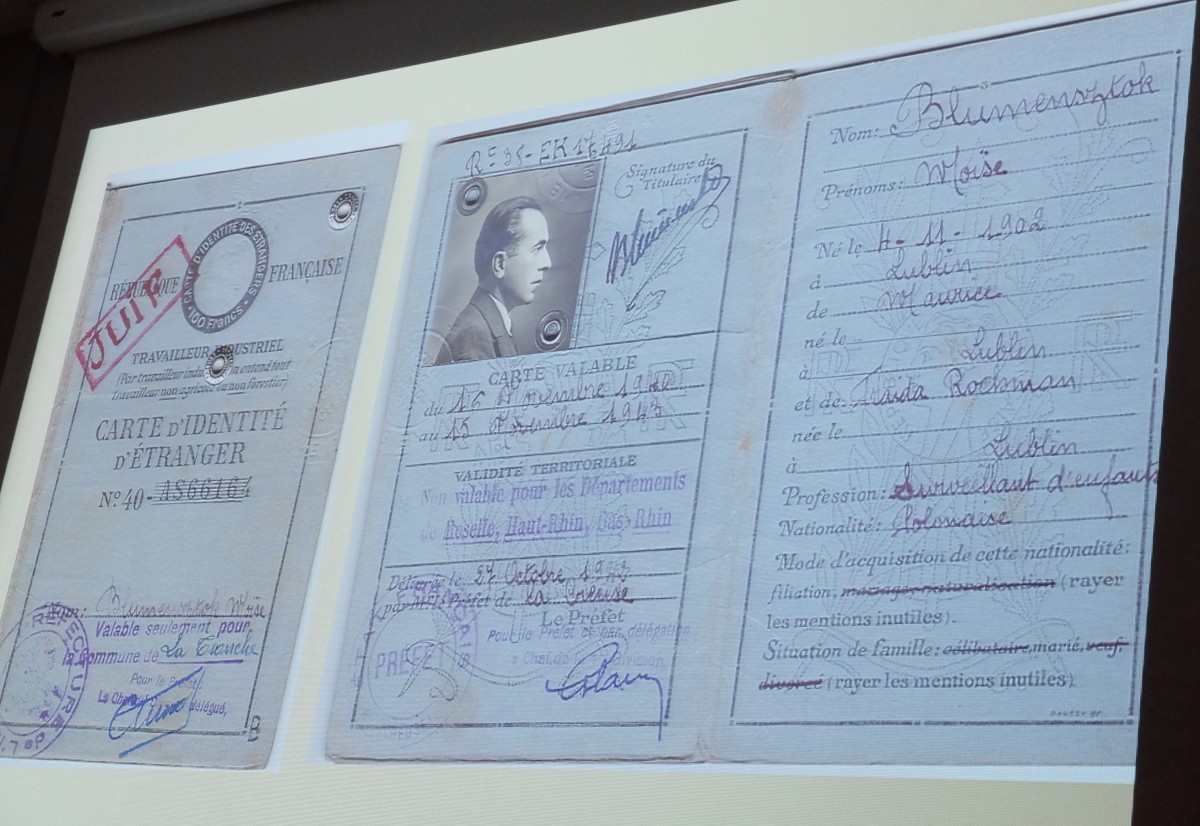 CARTE D'IDENTITÉ DES ÉTRANGERS
100 Francs
RÉPUBLIQUE FRANÇAISE
JUIF
TRAVAILLEUR INDUSTRIEL
(Par travailleur entend tout
travailleur non agricole ou non forestier)
CARTE D'IDENTITÉ
D'ÉTRANGER
N° 40 - AS66164
Blumensztok Moïse
Valable seulement pour
la Commune de La
Pour le Préfet
délégué,
B
Signature du
Titulaire
CARTE VALABLE
du 16 Novembre 1940
au 15 Novembre 1943
VALIDITÉ TERRITORIALE
Non valable pour les Départements
Moselle, Haut-Rhin, Bas-Rhin
Délivrée le 27 Octobre 1942
par M. le Préfet de La Creuse
Le Préfet
Pour le Préfet et par délégation
Chef de Division
PRÉFET
Nom: Blumensztok
Prénoms: Moïse
Né le 4-11-1902
à Lublin
de Maurice
né le
à Lublin
et de Rochman
née le
à Lublin
Profession: Surveillant d'enfants
Nationalité: Polonaise
Mode d'acquisition de cette nationalité:
filiation, mariage, naturalisation (rayer
les mentions inutiles).
Situation de famille: célibataire, marié, veuf,
divorcé (rayer les mentions inutiles)